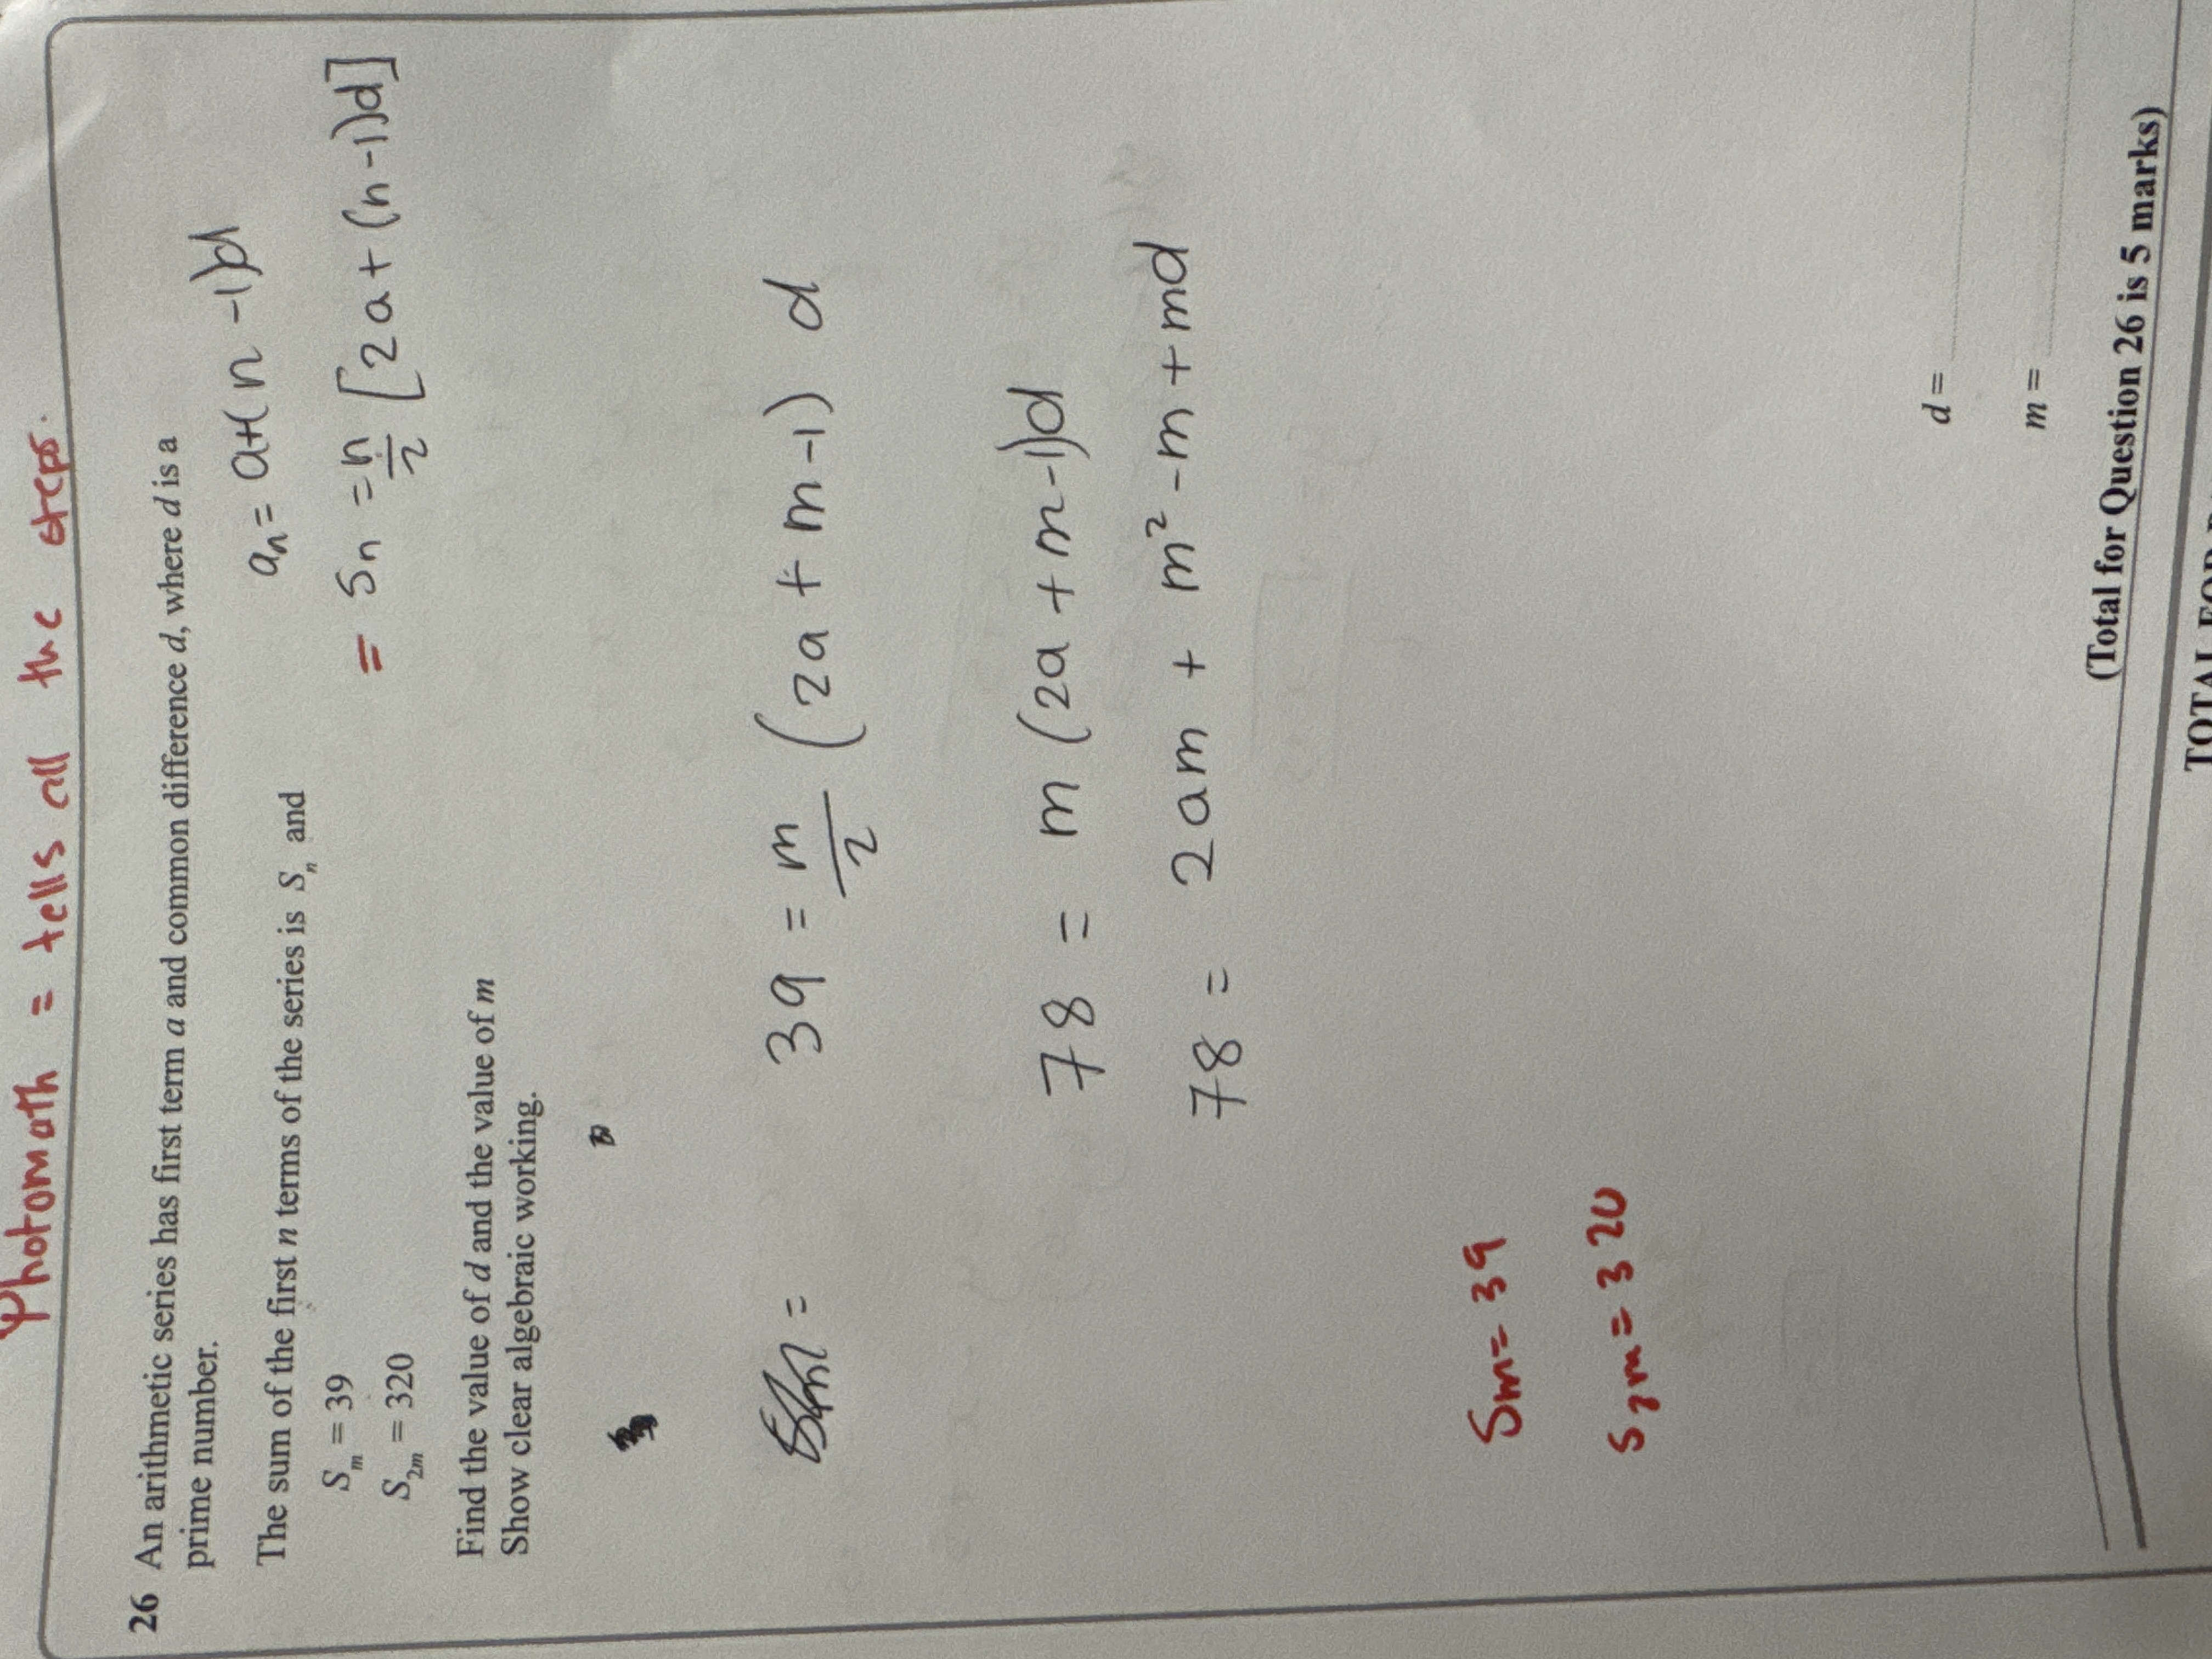 Photomath = tells all the steps.
26 An arithmetic series has first term a and common difference d, where d is a
prime number.
aₙ = a+(n-1)d
The sum of the first n terms of the series is Sₙ and
= Sₙ = n/2 [2a+(n-1)d]
Sₘ = 39
S₂ₘ = 320
Find the value of d and the value of m
Show clear algebraic working.
39 = m/2 (2a + m-1) d
78 = m (2a + m-1)d
78 = 2am + m² -m + md
Sm = 39
S₂m = 320
d =
m =
(Total for Question 26 is 5 marks)